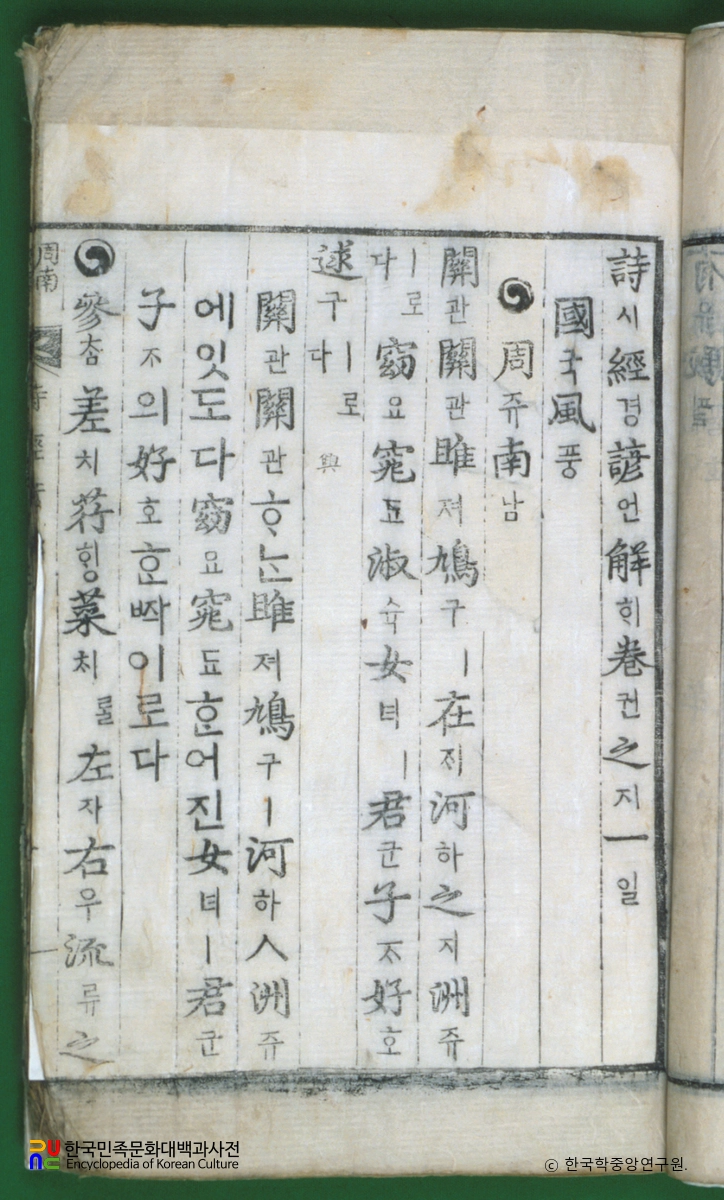 詩시經경諺언解ᄒᆡ卷권之지一일
國국風풍
周쥬南남
關관關관雎져鳩구ㅣ在ᄌᆡ河하之지洲쥬
ㅣ로다窈요窕됴淑슉女녀ㅣ君군子ᄌᆞ好호
逑구ㅣ로다 興
關관關관ᄒᆞᄂᆞᆫ雎져鳩구ㅣ河하人洲쥬
에잇도다窈요窕됴ᄒᆞᆫ어진女녀ㅣ君군
子ᄌᆞ의好호ᄒᆞᆫᄧᅡᆨ이로다
參ᄎᆞᆷ差치荇ᄒᆡᆼ菜ᄎᆡ를左자右우流류之
周南
한국민족문화대백과사전
Encyclopedia of Korean Culture
ⓒ 한국학중앙연구원.